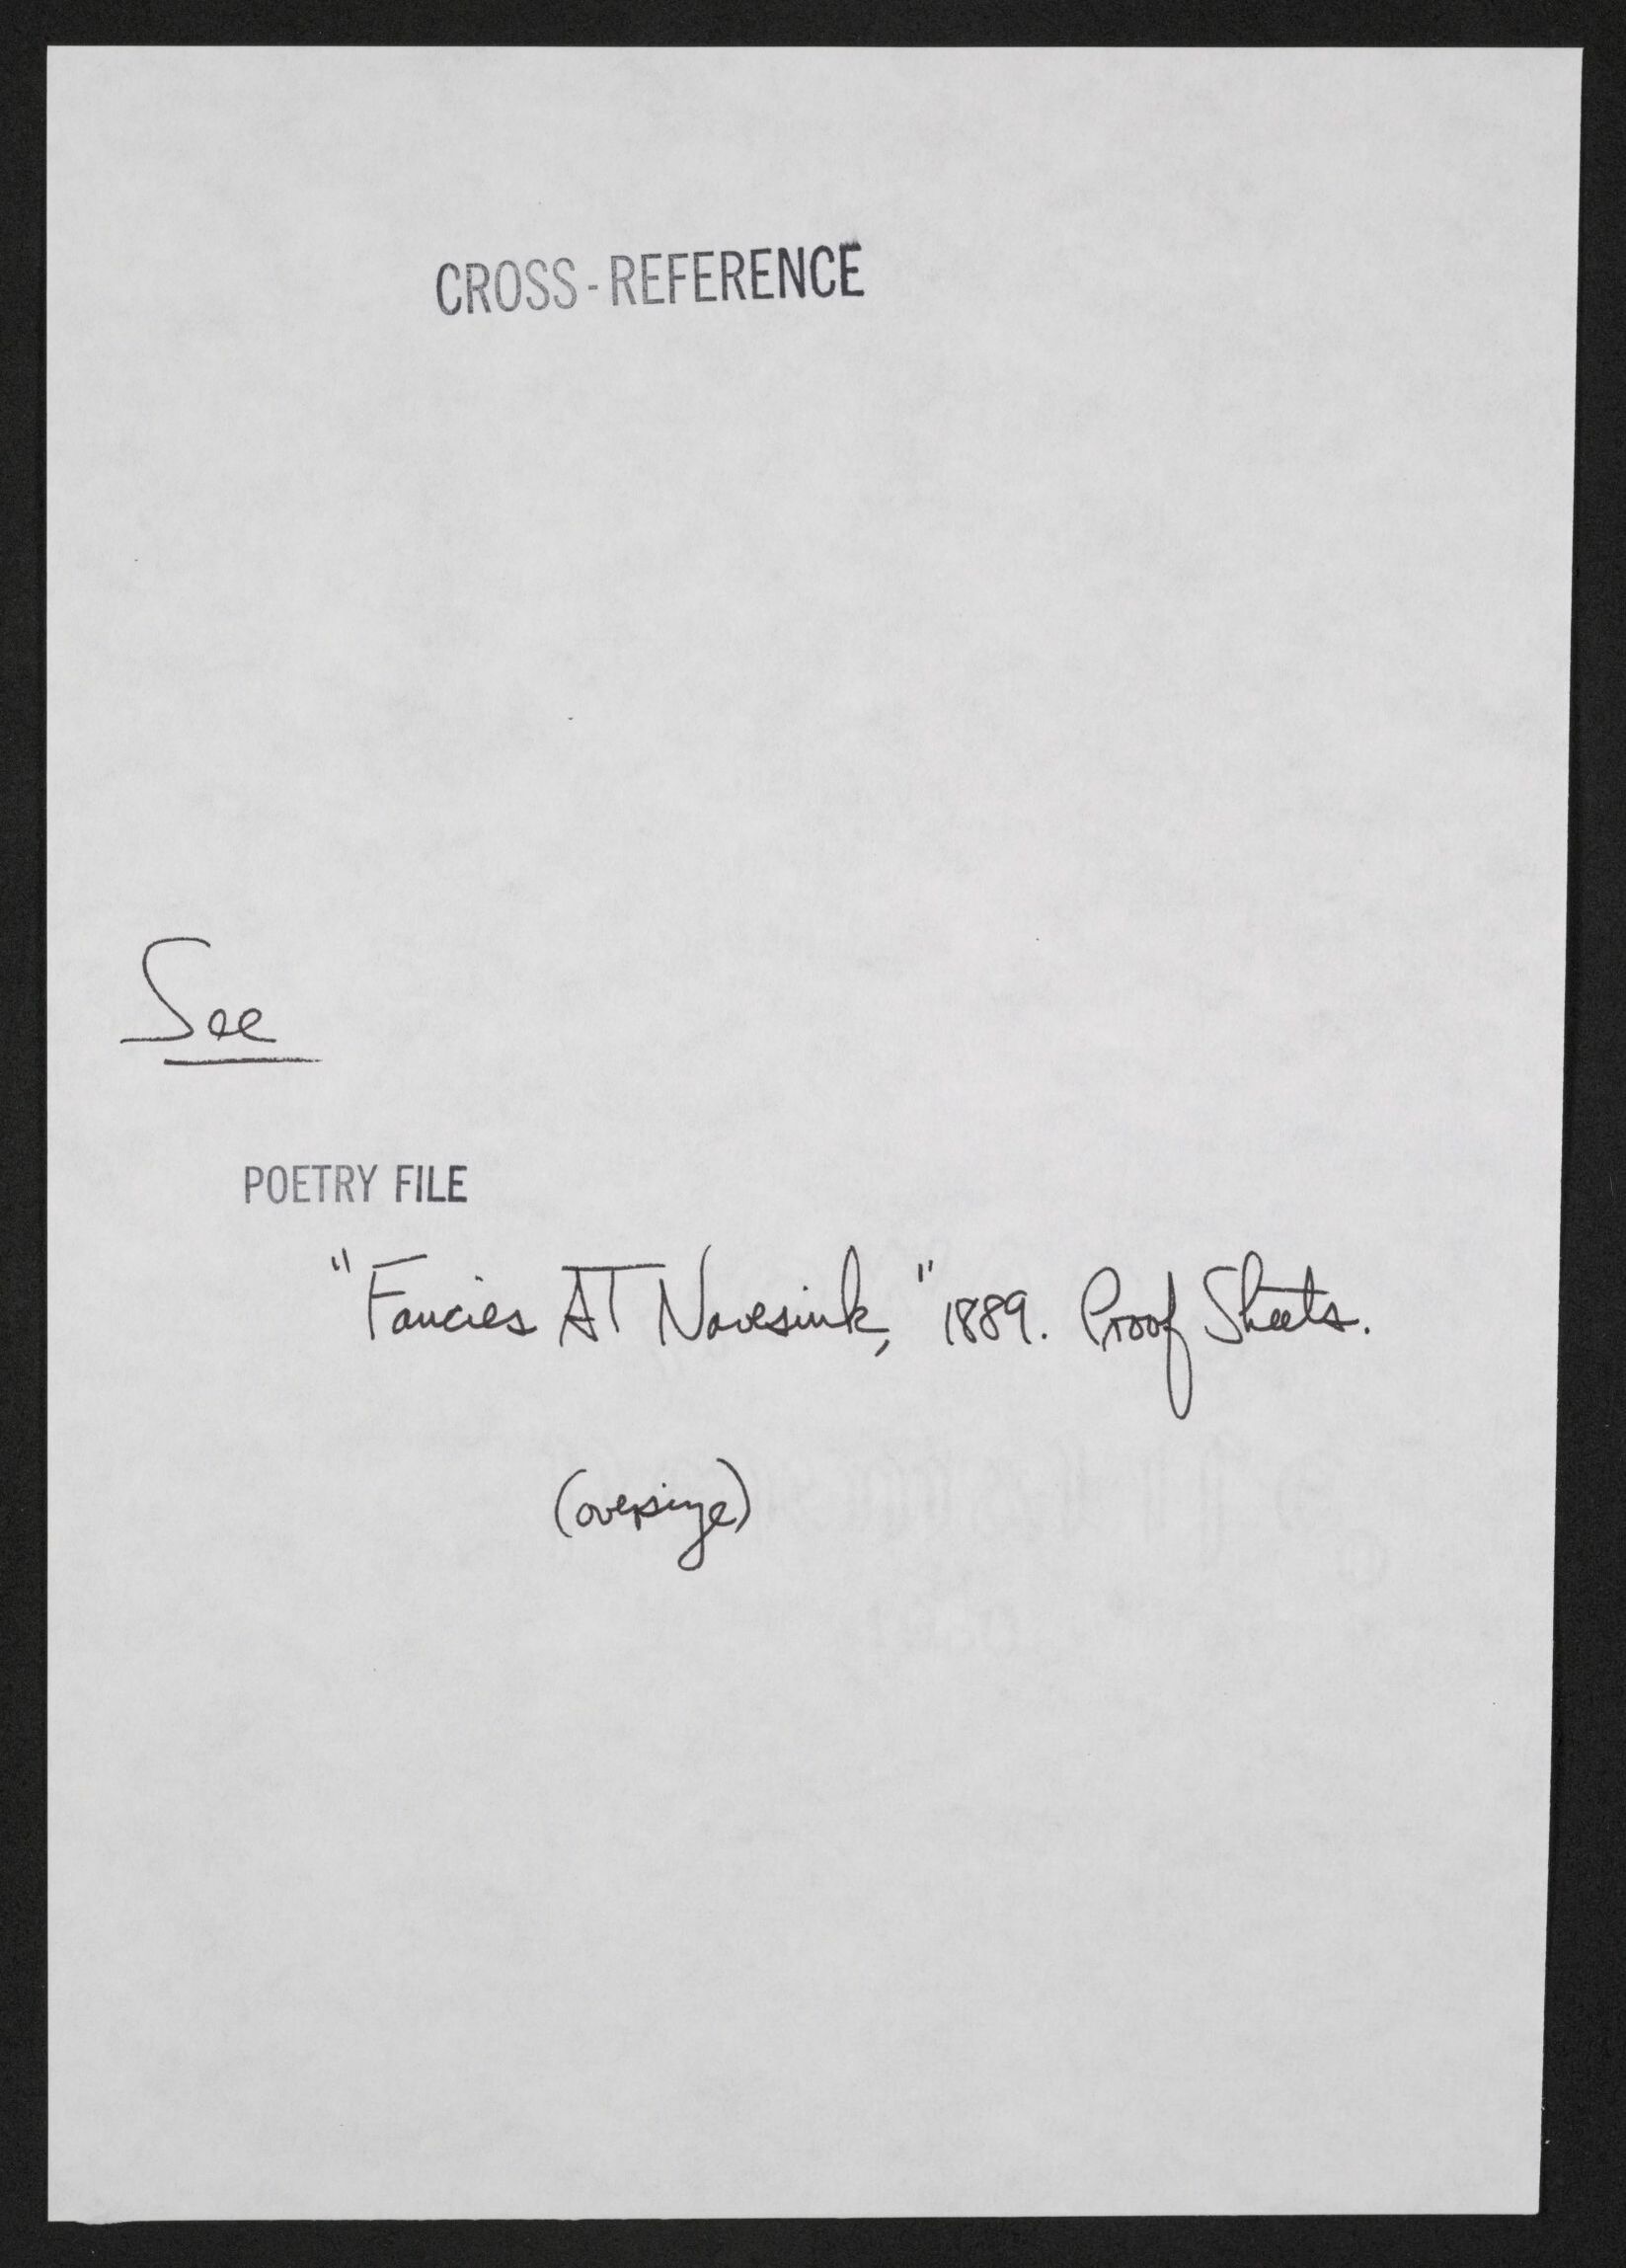 CROSS-REFERENCE
See
POETRY FILE
"Fancies AT Navesink," 1889. Proof Sheets.
(oversize)